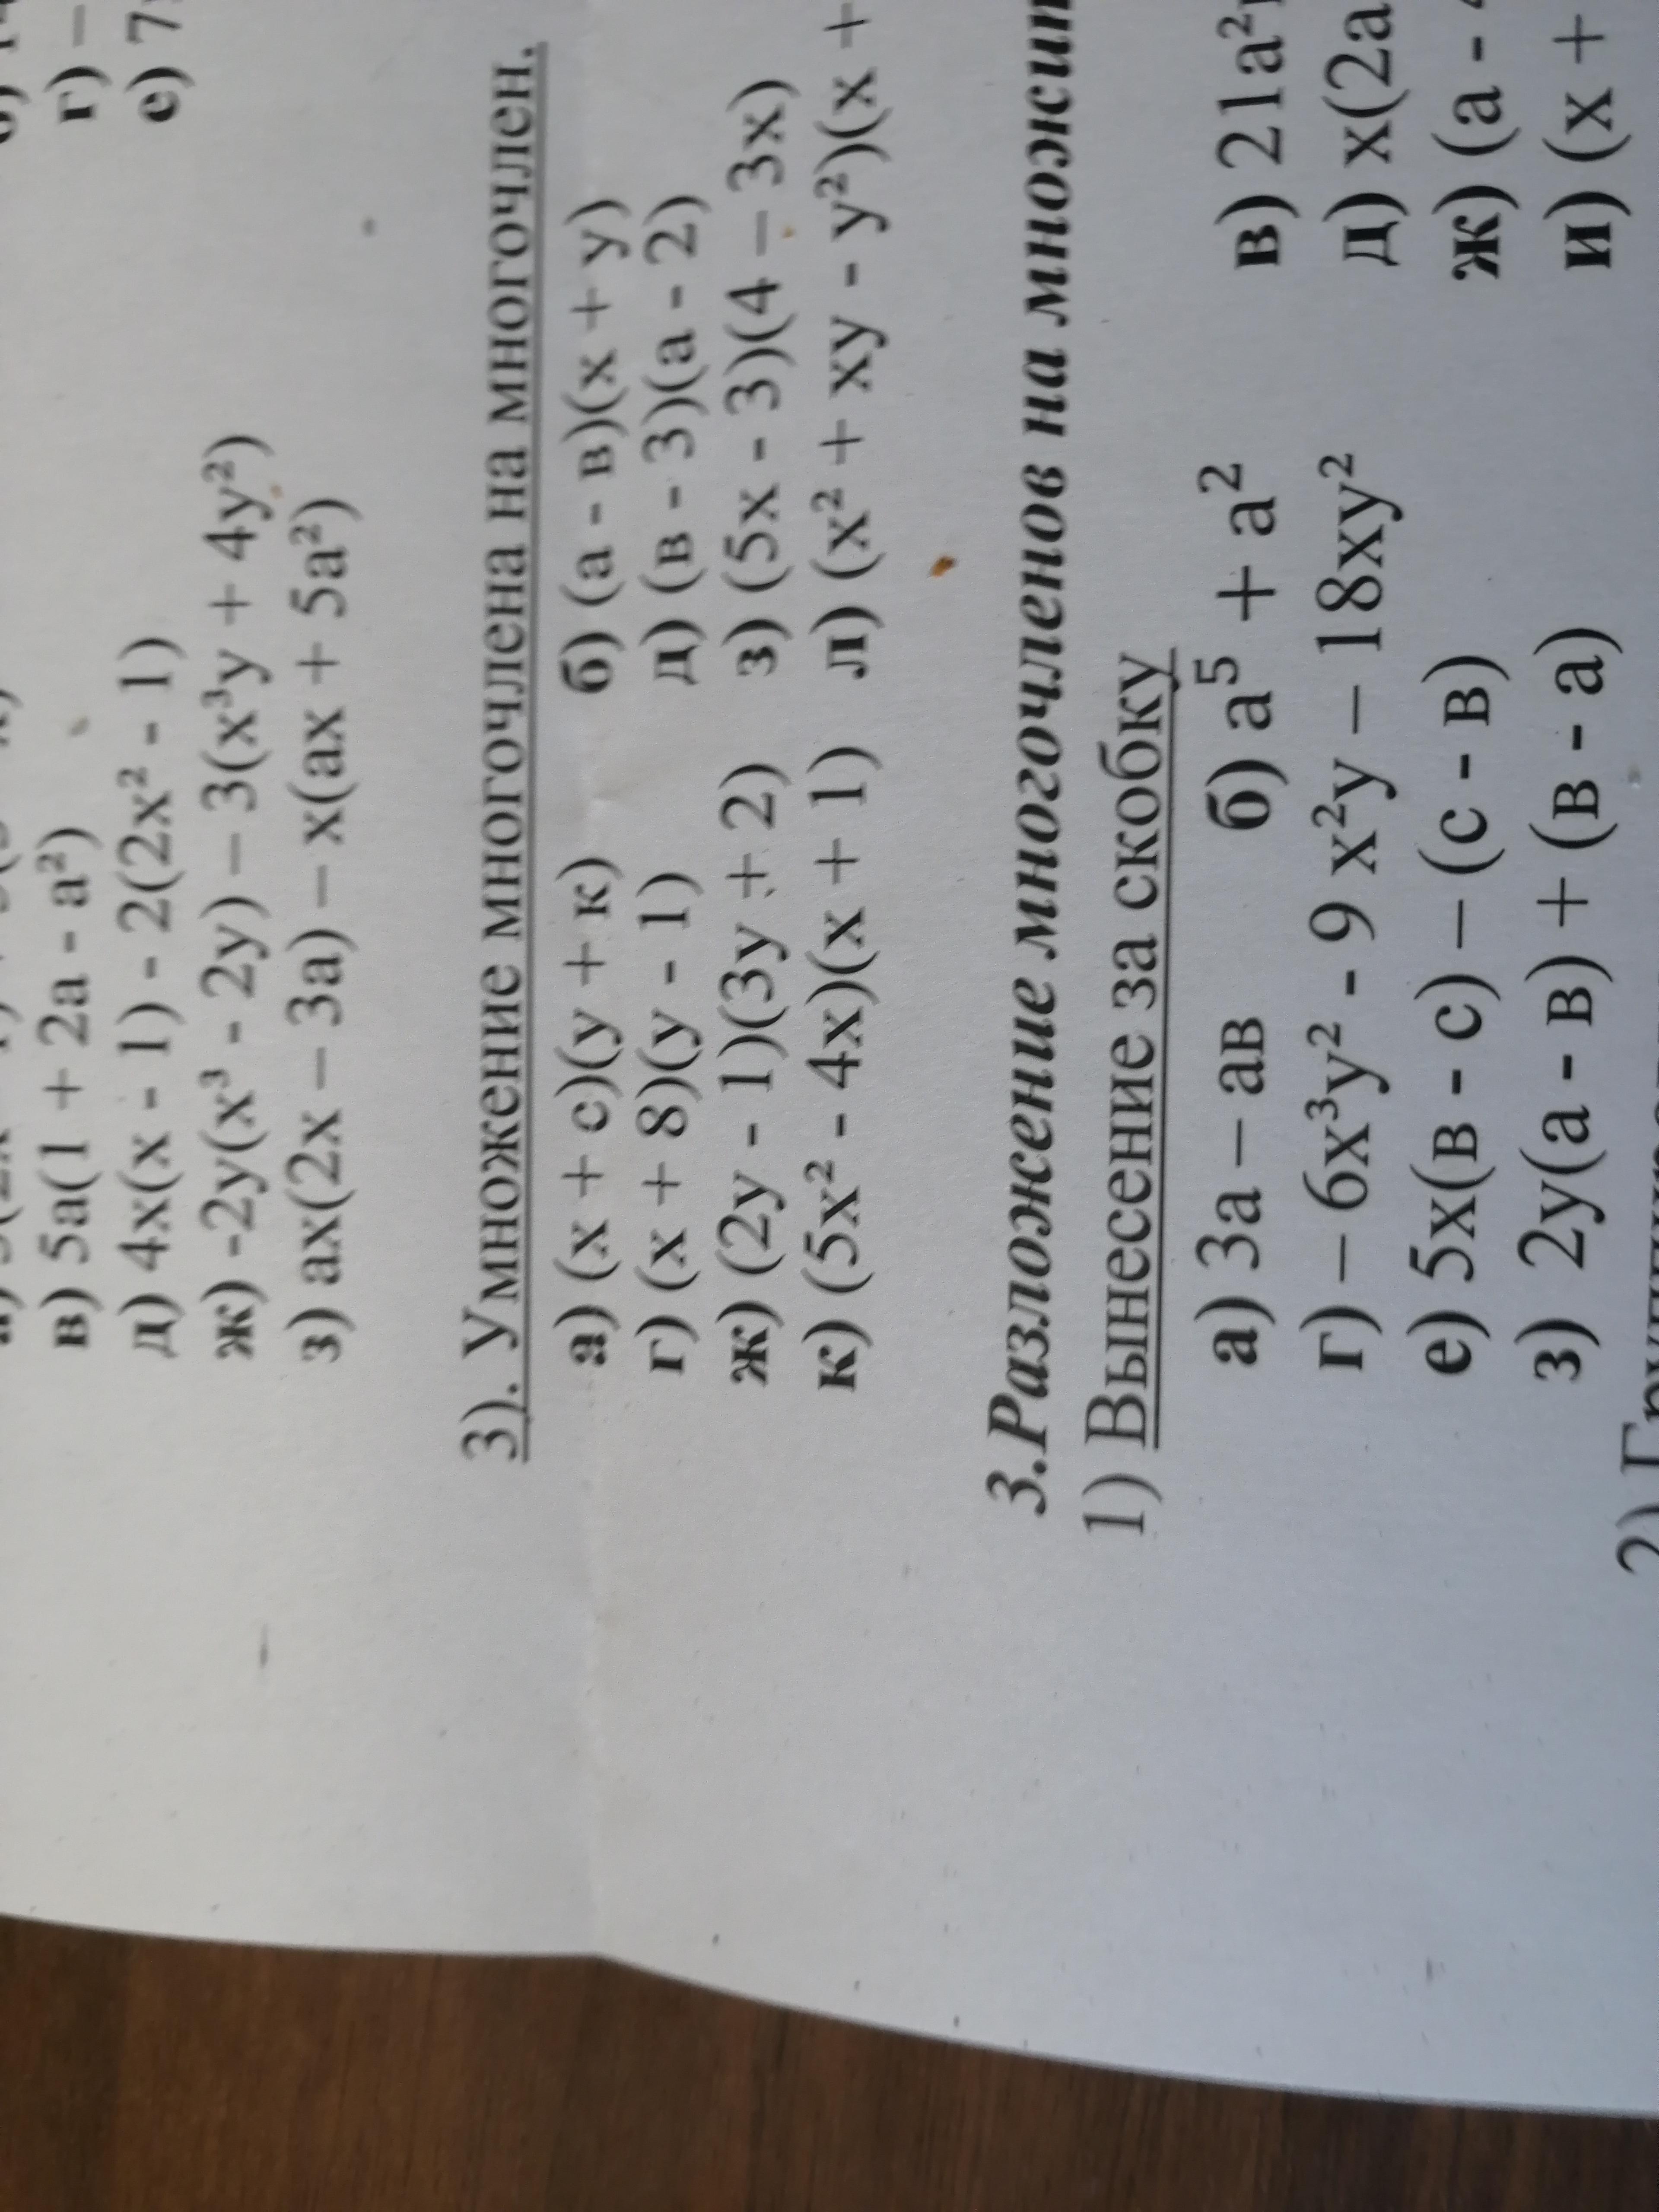 г) –
е) 7
в) 5а(1 + 2а - а²)
д) 4х(х - 1) - 2(2х² - 1)
ж) -2у(х³ - 2у) – 3(х³у + 4у²)
з) ах(2х – 3а) – х(ах + 5а²)
3). Умножение многочлена на многочлен.
а) (х + с)(у + к) б) (а - в)(х + у)
г) (х + 8)(у - 1) д) (в - 3)(а - 2)
ж) (2у - 1)(3у + 2) з) (5х - 3)(4 – 3х)
к) (5х² - 4х)(х + 1) л) (х² + ху - у²)(х +
3.Разложение многочленов на множит
1) Вынесение за скобку
а) 3а – ав б) а⁵ + а² в) 21а²
г) – 6х³у² - 9 х²у – 18ху² д) х(2а
е) 5х(в - с) – (с - в) ж) (а -
з) 2у(а - в) + (в - а) и) (х +
2)